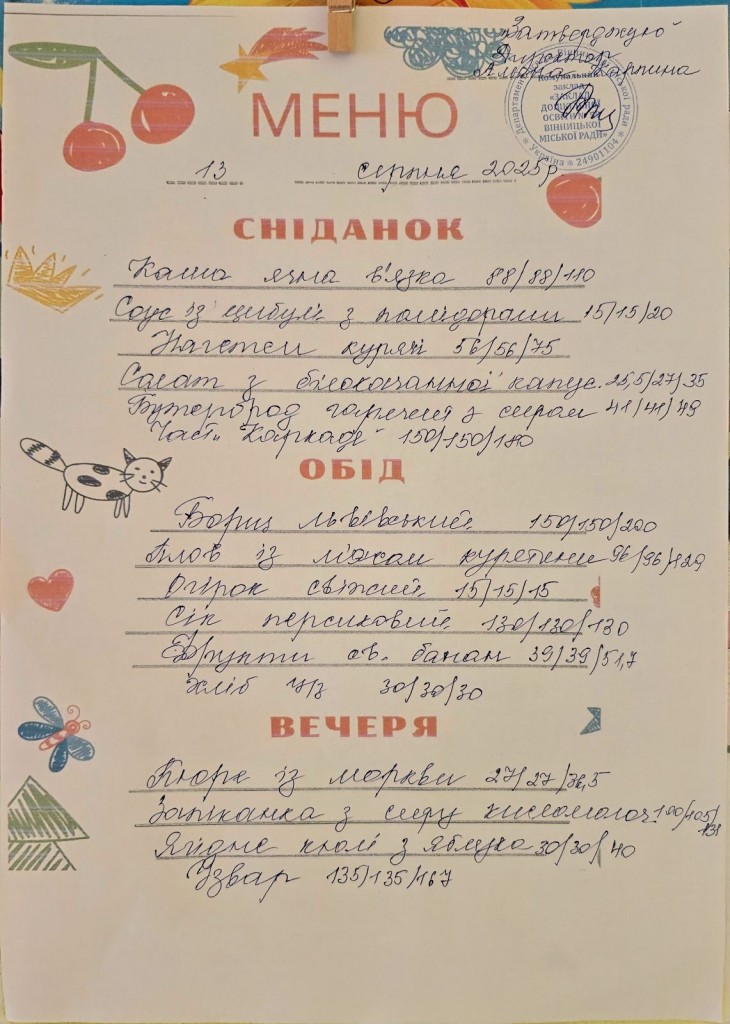 Затверджую
Директор
Карпина
Вінницької міської ради
Комунальний
заклад
«ЗАКЛАД
ДОШКІЛЬНОЇ
ОСВІТИ
ВІННИЦЬКОЇ
МІСЬКОЇ РАДИ»
Україна * 24901104 *
МЕНЮ
13 серпня 2025р
СНІДАНОК
Каша ячна в'язка 88/88/110
Соус із цибулі з помідорами 15/15/20
Нагетси курячі 56/56/75
Салат з білокачанної капус. 25,5/27/35
Бутерброд гарячий з сиром 41/41/49
Чай "Каркаде" 150/150/180
ОБІД
Борщ львівський 150/150/200
Плов із м'ясом курятини 96/96/129
Огірок свіжий 15/15/15
Сік персиковий 130/130/130
Фрукти св. банан 39/39/51,7
Хліб ц/з 30/30/30
ВЕЧЕРЯ
Пюре із моркви 27/27/36,5
Запіканка з сиру кисломолоч. 100/105/131
Ягідне кюлі з яблука 30/30/40
Узвар 135/135/167